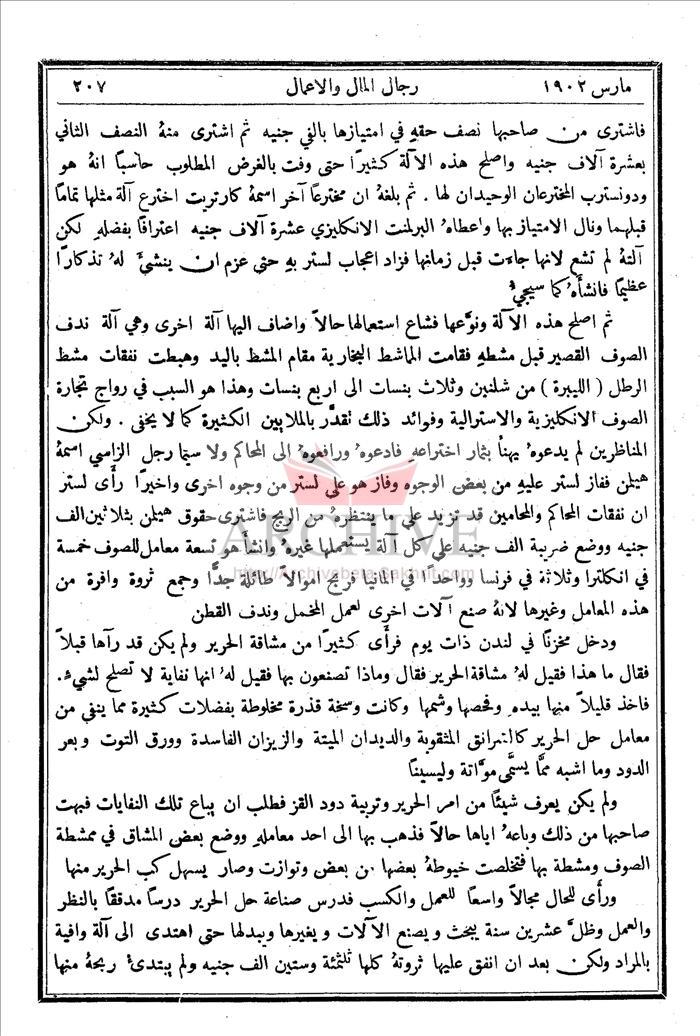 مارس ١٩٠٢ رجال المال والاعمال ٢٠٧
فاشترى من صاحبها نصف حقهِ في امتيازها بالفي جنيه ثم اشترى منهُ النصف الثاني
بعشرة آلاف جنيه واصلح هذه الآلة كثيرًا حتى وفت بالغرض المطلوب حاسبًا انهُ هو
ودونسترب المخترعان الوحيدان لها . ثم بلغهُ ان مخترعًا آخر اسمهُ كارتريت اخترع آلة مثلها تمامًا
قبلهما ونال الامتياز بها واعطاهُ البرلمنت الانكليزي عشرة آلاف جنيه اعترافًا بفضلهِ لكن
آلتهُ لم تشع لانها جاءت قبل زمانها فزاد اعجاب لستر بهِ حتى عزم ان ينشئَ لهُ تذكارًا
عظيمًا فانشأَهُ كما سيجيءُ
ثم اصلح هذه الآلة ونوَّعها فشاع استعمالها حالاً واضاف اليها آلة اخرى وهي آلة ندف
الصوف القصير قبل مشطهِ فقامت المماشط البخارية مقام المشط باليد وهبطت نفقات مشط
الرطل ( الليبرة ) من شلنين وثلاث بنسات الى اربع بنسات وهذا هو السبب في رواج تجارة
الصوف الانكليزية والاسترالية وفوائد ذلك تقدَّر بالملايين الكثيرة كما لا يخفى . ولكن
المناظرين لم يدعوهُ يهنأُ بثمار اختراعهِ فادعوهُ ورافعوهُ الى المحاكم ولا سيما رجل الزاسي اسمهُ
هيلمن ففاز لستر عليهِ من بعض الوجوه وفاز هو على لستر من وجوه اخرى واخيرًا رأَى لستر
ان نفقات المحاكم والمحامين قد تزيد على ما ينتظرهُ من الربح فاشترى حقوق هيلمن بثلاثين الف
جنيه ووضع ضريبة الف جنيه على كل آلة يستعملها غيرهُ وانشأَ هو تسعة معامل للصوف خمسة
في انكلترا وثلاثة في فرنسا وواحدًا في المانيا فربح اموالاً طائلة جدًّا وجمع ثروة وافرة من
هذه المعامل وغيرها لانهُ صنع آلات اخرى لعمل المخمل وندف القطن
ودخل مخزنًا في لندن ذات يوم فرأَى كثيرًا من مشاقة الحرير ولم يكن قد رآها قبلاً
فقال ما هذا فقيل لهُ مشاقة الحرير فقال وماذا تصنعون بها فقيل لهُ انها نفاية لا تصلح لشيءٍ .
فاخذ قليلاً منها بيدهِ وفحصها وشمها وكانت وسخة قذرة مخلوطة بفضلات كثيرة مما ينفى من
معامل حل الحرير كالشرانق المثقوبة والديدان الميتة والزيزان الفاسدة وورق التوت وبعر
الدود وما اشبه ممَّا يسمَّى موَّاتة وليسينًا
ولم يكن يعرف شيئًا من امر الحرير وتربية دود القز فطلب ان يباع تلك النفايات فبهت
صاحبها من ذلك وباعهُ اياها حالاً فذهب بها الى احد معاملهِ ووضع بعض المشاق في ممشطة
الصوف ومشطهُ بها فتخلصت خيوطهُ بعضها من بعض وتوازت وصار يسهل كب الحرير منها
ورأَى للحال مجالاً واسعًا للعمل والكسب فدرس صناعة حل الحرير درسًا مدققًا بالنظر
والعمل وظلَّ عشرين سنة يبحث ويصنع الآلات ويغيرها ويبدلها حتى اهتدى الى آلة وافية
بالمراد ولكن بعد ان انفق عليها ثروتهُ كلها ثلثمئة وستين الف جنيه ولم يبتدئ ربحهُ منها
ARCHIVE
http://Archivebeta.Sakhrit.com